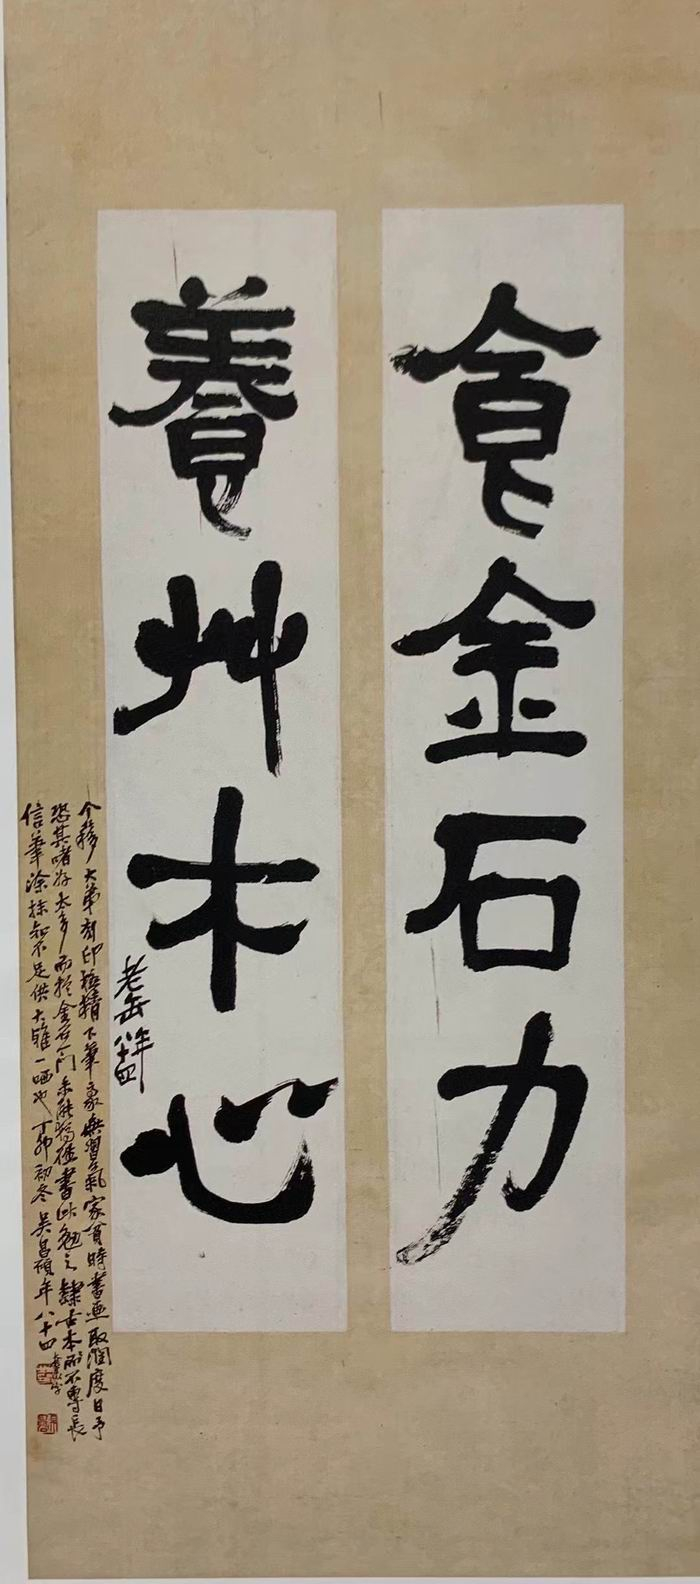 食金石力
養艸木心
老缶年八十四
个簃大弟刻印極精下筆豪無習氣家貧時書畫取潤度日予
恐其嗜好太多而於金石一門未能犒
書此勉之隸古本所不專長
信筆塗抹知不足供大雅一哂也丁卯初冬吳昌碩年八十四